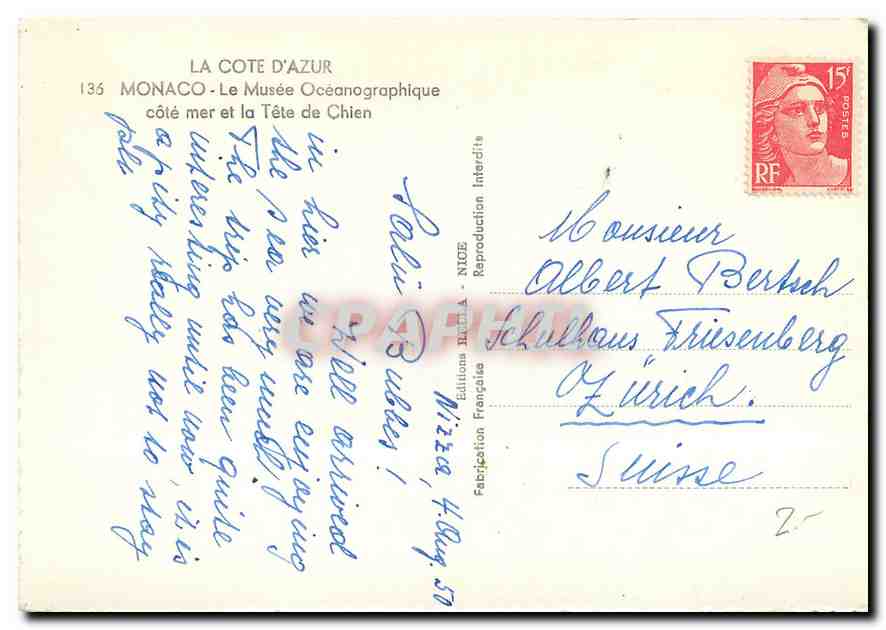 LA COTE D'AZUR
136 MONACO - Le Musée Océanographique
côté mer et la Tête de Chien
Nizza, 4. Aug. 50
Salü Bubbes!
Well arrived
in hier we are enjoying
the sea very much!
The trip has been quite
interesting until now, it is
a pity really not to stay
Editions - NICE
Fabrication Française Reproduction Interdite
15F
POSTES
RF
Monsieur
Albert Bertsch
Schulhaus "Friesenberg
Zürich.
Suisse
2.-
CPAPHIL